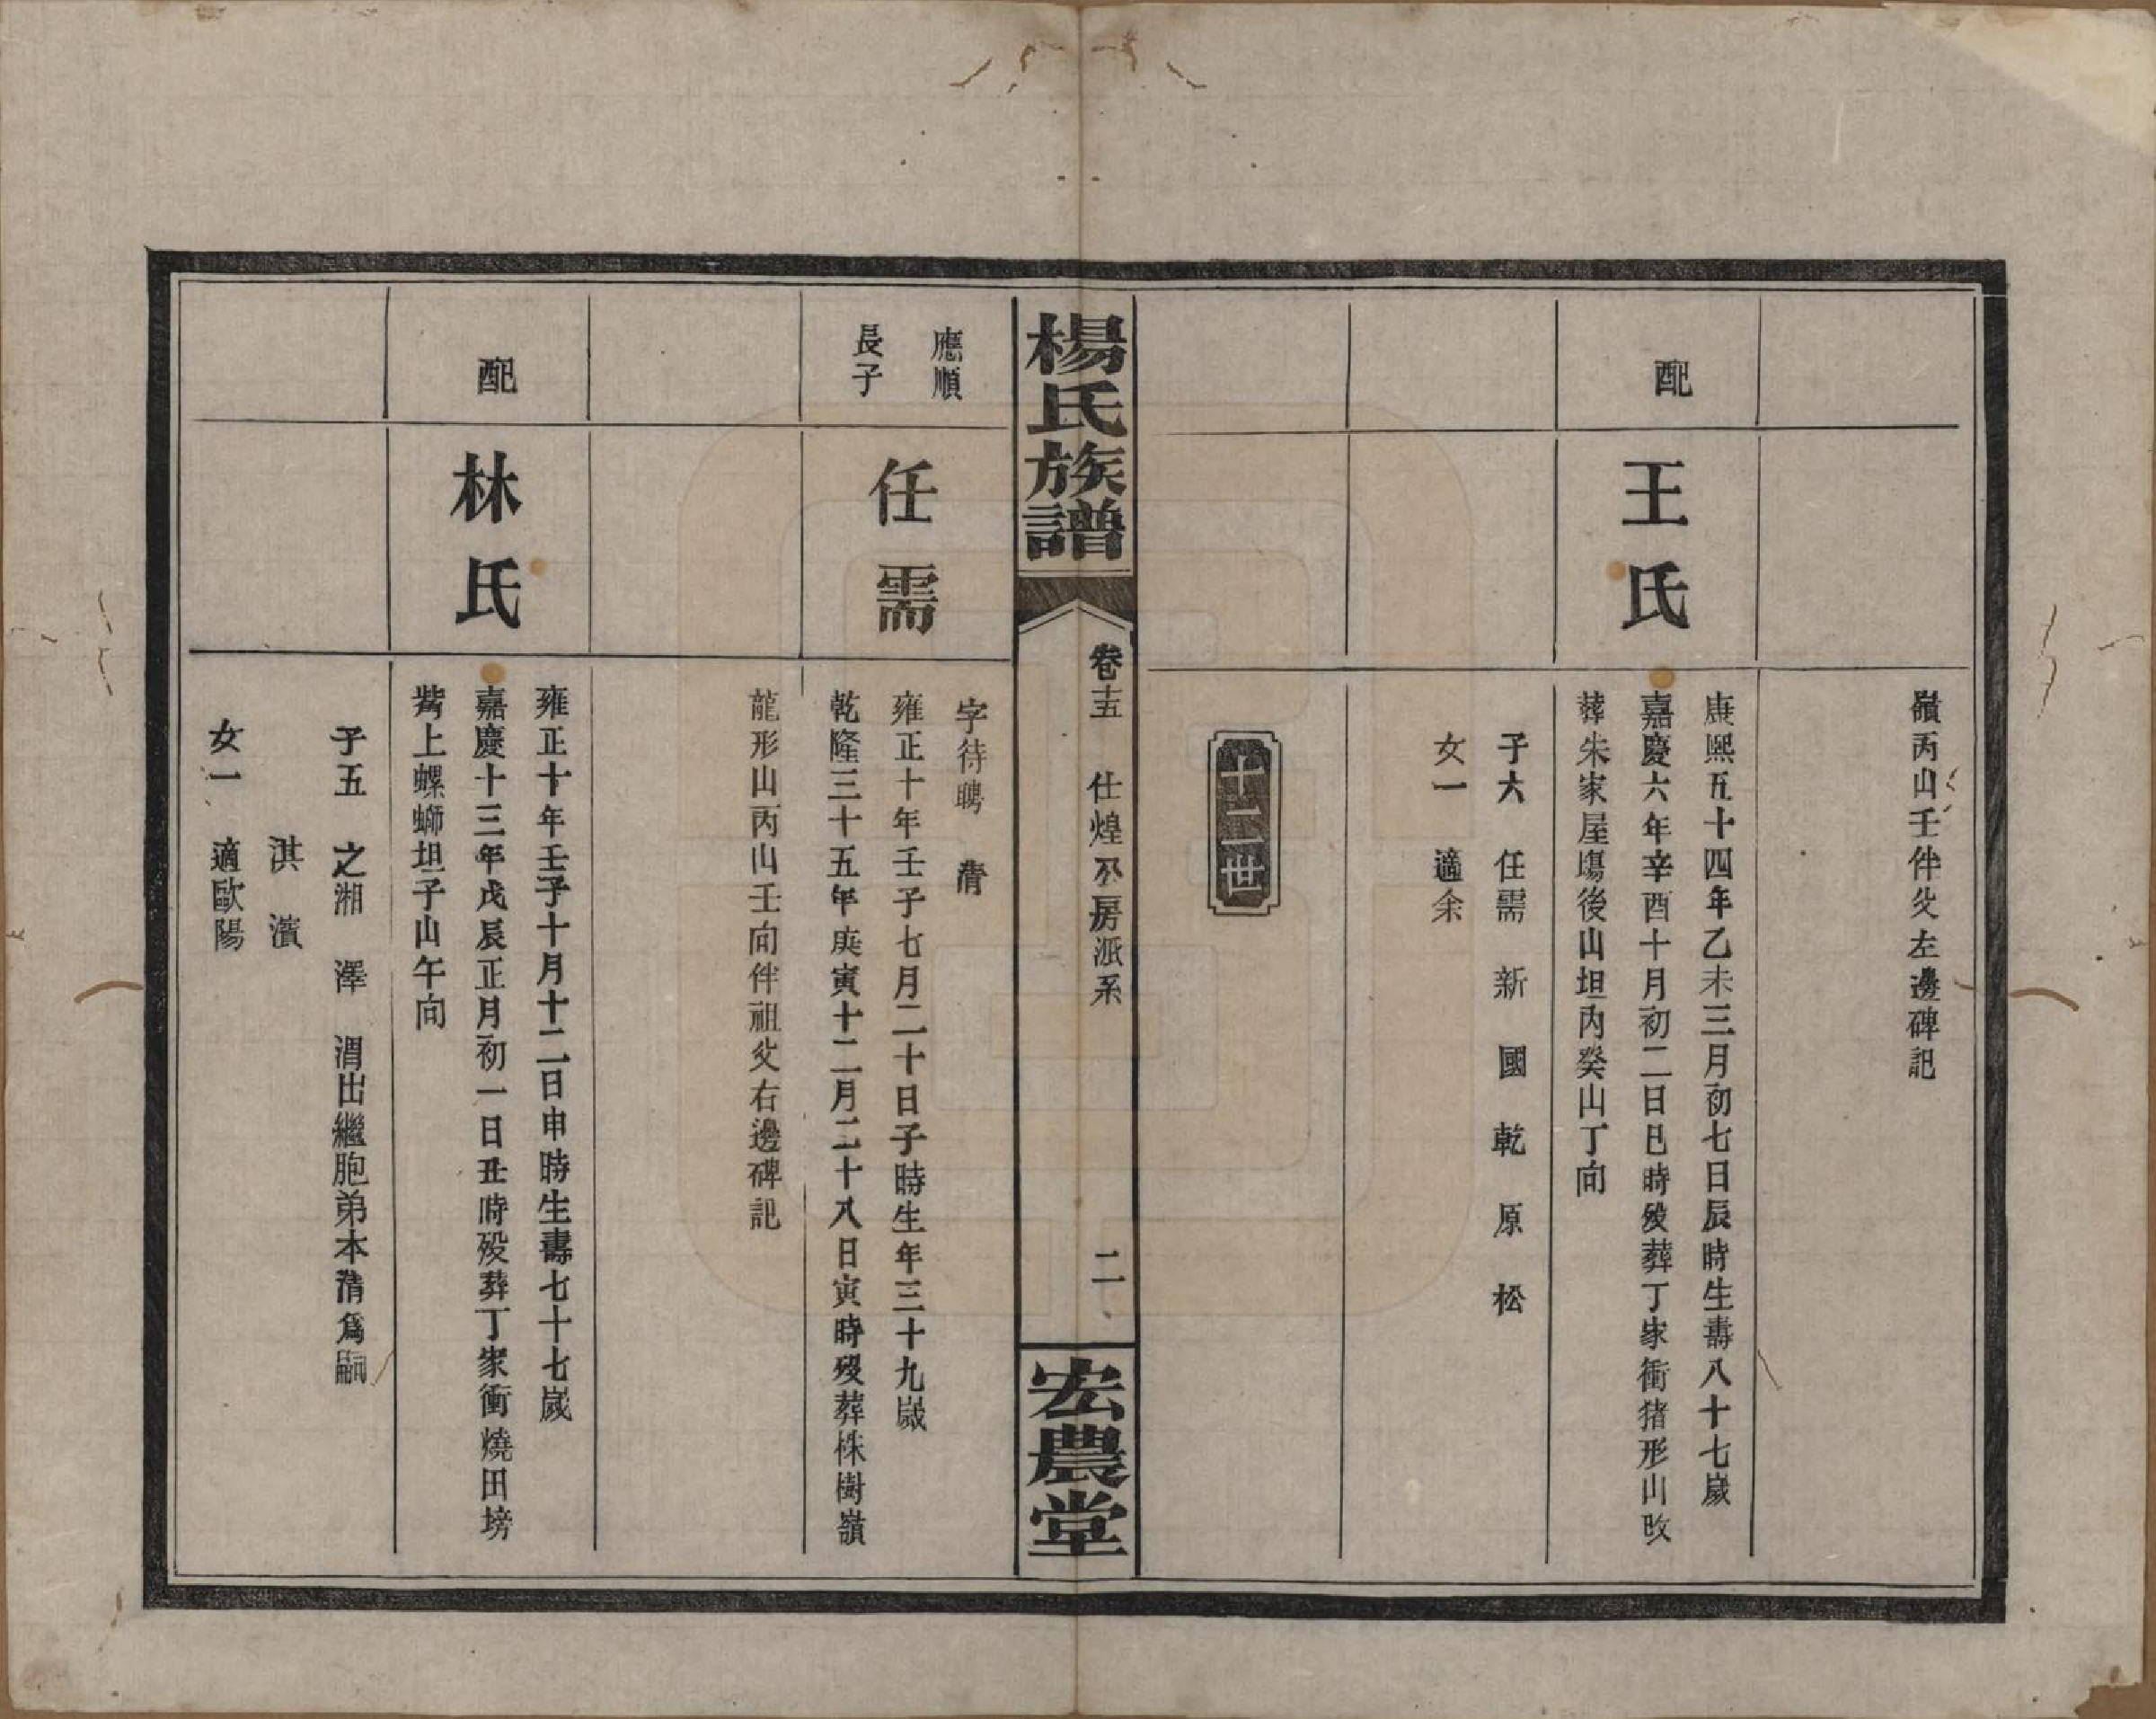 嶺丙山壬伴父左邊碑記
配
王氏
康熙五十四年乙未三月初七日辰時生壽八十七歲
嘉慶六年辛酉十月初二日巳時歿葬丁家衝猪形山改
葬朱家屋塲後山坦內癸山丁向
子六 任需 新 國 乾 原 松
女一 適余
十二世
楊氏族譜
卷十五 仕煌公房派系 二
宏農堂
應順
長子
任需
字待聘 清
雍正十年壬子七月二十日子時生年三十九歲
乾隆三十五年庚寅十二月二十八日寅時歿葬株樹嶺
龍形山丙山壬向伴祖父右邊碑記
配
林氏
雍正十年壬子十月十二日申時生壽七十七歲
嘉慶十三年戊辰正月初一日丑時歿葬丁家衝燒田塝
上螺螄坦子山午向
子五 之湘 澤 渭出繼胞弟本清爲嗣
淇 濱
女一 適歐陽